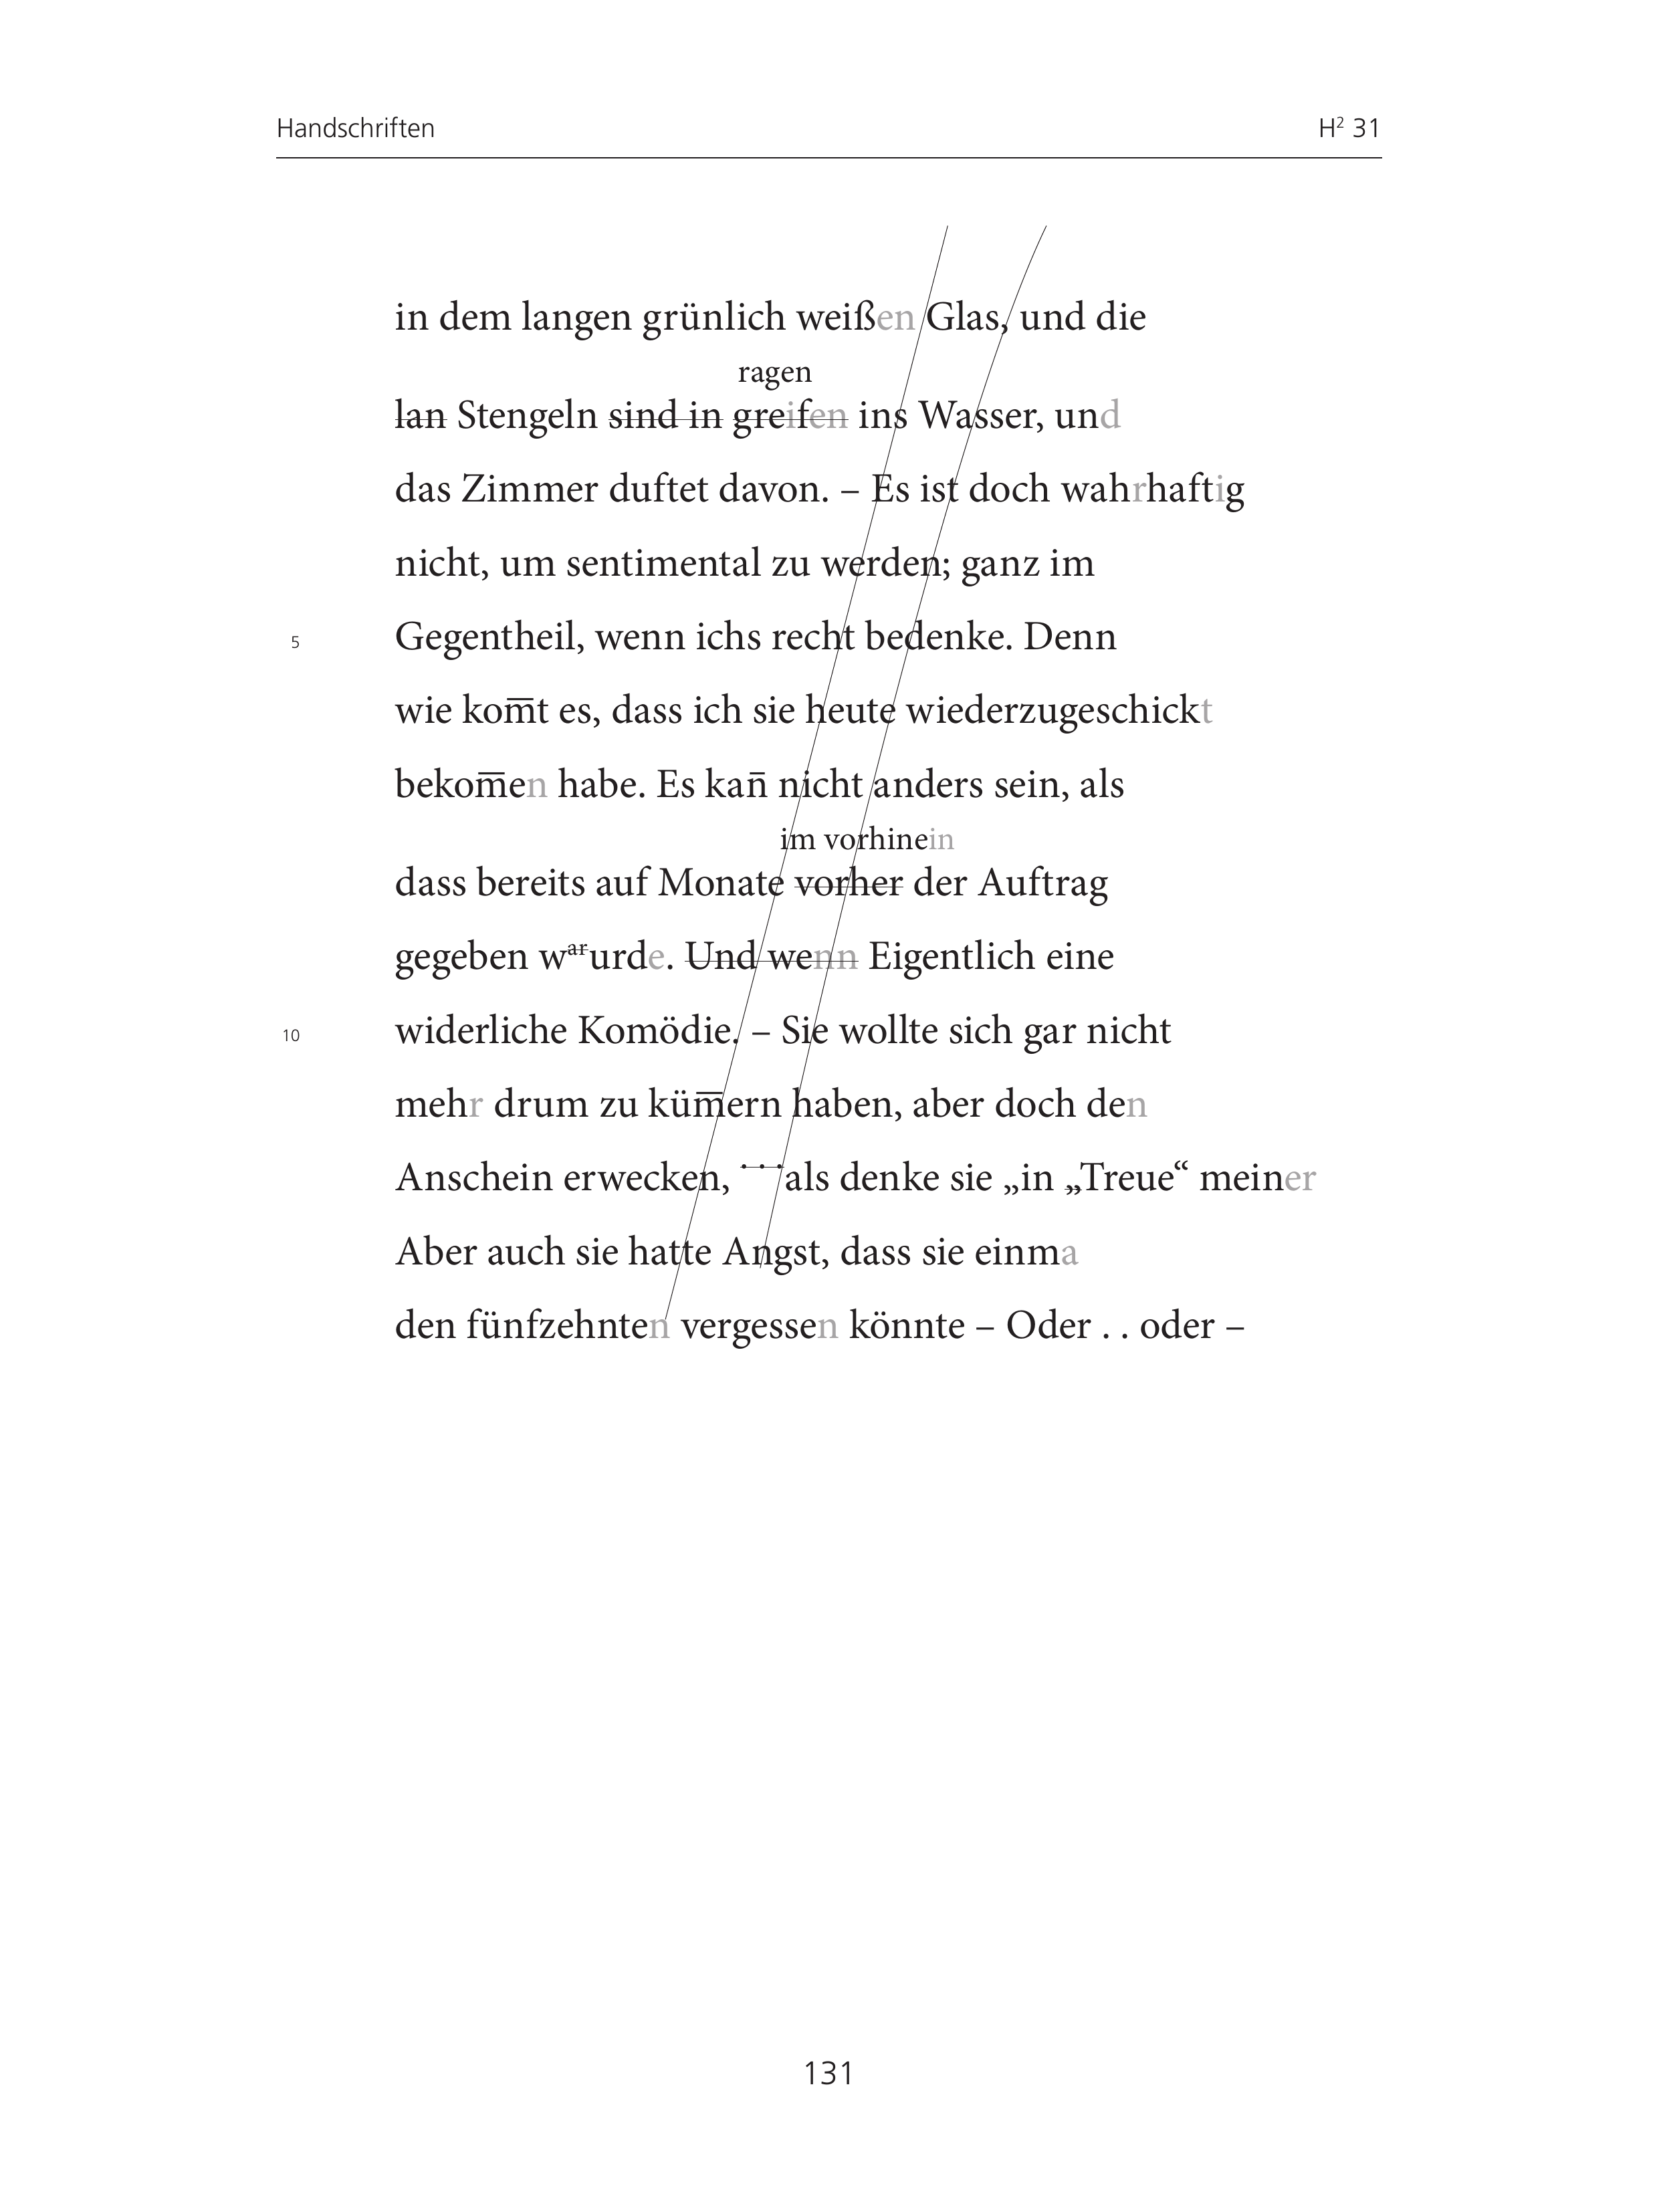 Handschriften H² 31
in dem langen grünlich weißen Glas, und die
ragen
lan Stengeln sind in greifen ins Wasser, und
das Zimmer duftet davon. – Es ist doch wahrhaftig
nicht, um sentimental zu werden; ganz im
5 Gegentheil, wenn ichs recht bedenke. Denn
wie kom̅t es, dass ich sie heute wiederzugeschickt
bekom̅en habe. Es kan̅ nicht anders sein, als
im vorhinein
dass bereits auf Monate vorher der Auftrag
gegeben warurde. Und wenn Eigentlich eine
10 widerliche Komödie. – Sie wollte sich gar nicht
mehr drum zu küm̅ern haben, aber doch den
Anschein erwecken, ··· als denke sie „in „Treue“ meiner
Aber auch sie hatte Angst, dass sie einma
den fünfzehnten vergessen könnte – Oder . . oder –
131